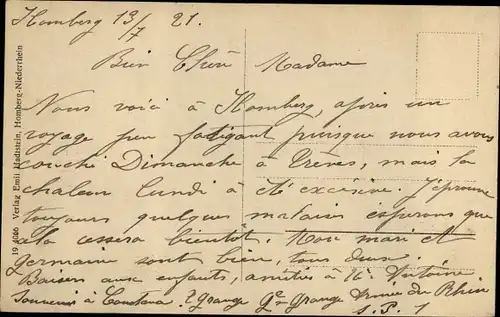 Homberg 13/7 21.
Bien Chère Madame
Nous voici à Homberg, après un
voyage peu fatigant puisque nous avons
couché Dimanche à Trèves, mais la
chaleur lundi à été excésive. J'éprouve
toujours quelques malaises esperons que
cela cessera bientôt. Mon mari et
germaine sont bien, tous deux.
Baisers aux enfants, amitiés à Mr Antoine
Souvenir à Grange Gr Grange Armée du Rhin
S.P. 1
19 4066 Verlag Emil Hadtstein, Homberg-Niederrhein